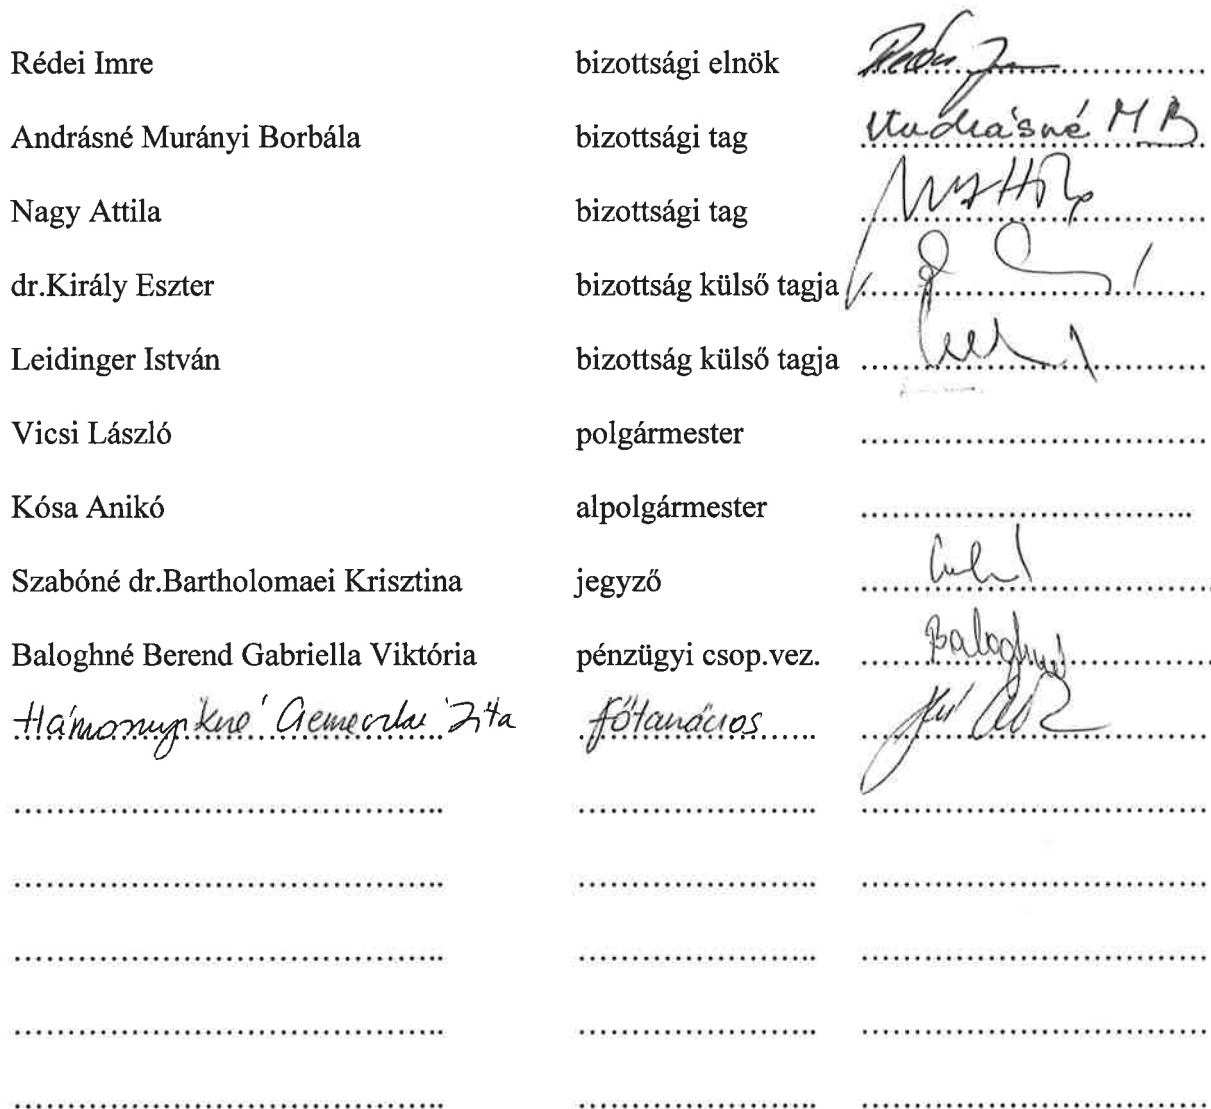 Rédei Imre bizottsági elnök
Andrásné Murányi Borbála bizottsági tag Andrásné M B
Nagy Attila bizottsági tag
dr.Király Eszter bizottság külső tagja
Leidinger István bizottság külső tagja
Vicsi László polgármester
Kósa Anikó alpolgármester
Szabóné dr.Bartholomaei Krisztina jegyző
Baloghné Berend Gabriella Viktória pénzügyi csop.vez. Baloghné
Zita főtanácsos